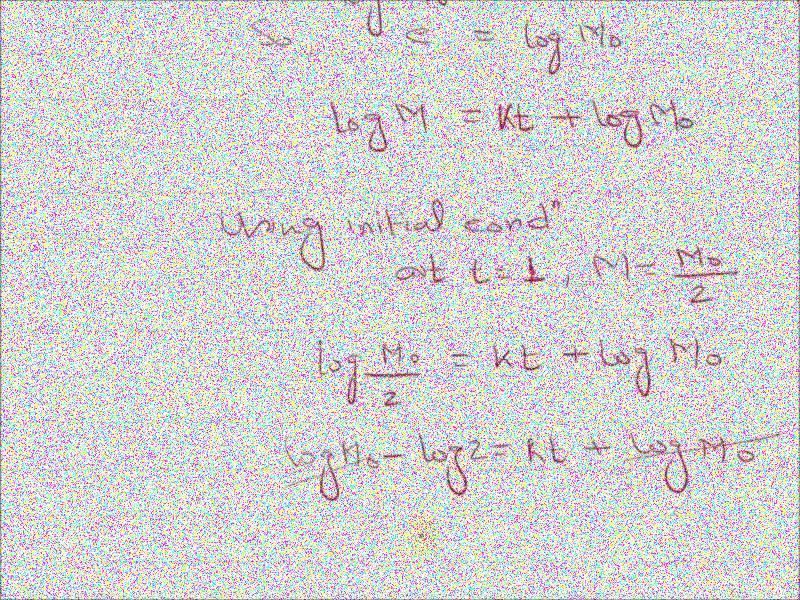 So, c = log M₀
log M = Kt + log M₀
Using initial condⁿ
at t = 1, M = M₀/2
log M₀/2 = Kt + log M₀
log M₀ - log 2 = Kt + log M₀